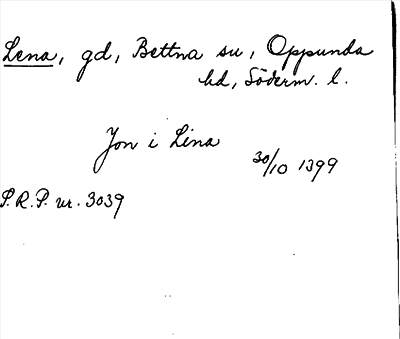 Lena, gd, Bettna sn, Oppunda
hd, Söderm. l.
Jon i Lina
30/10 1399
S.R.P. nr. 3039